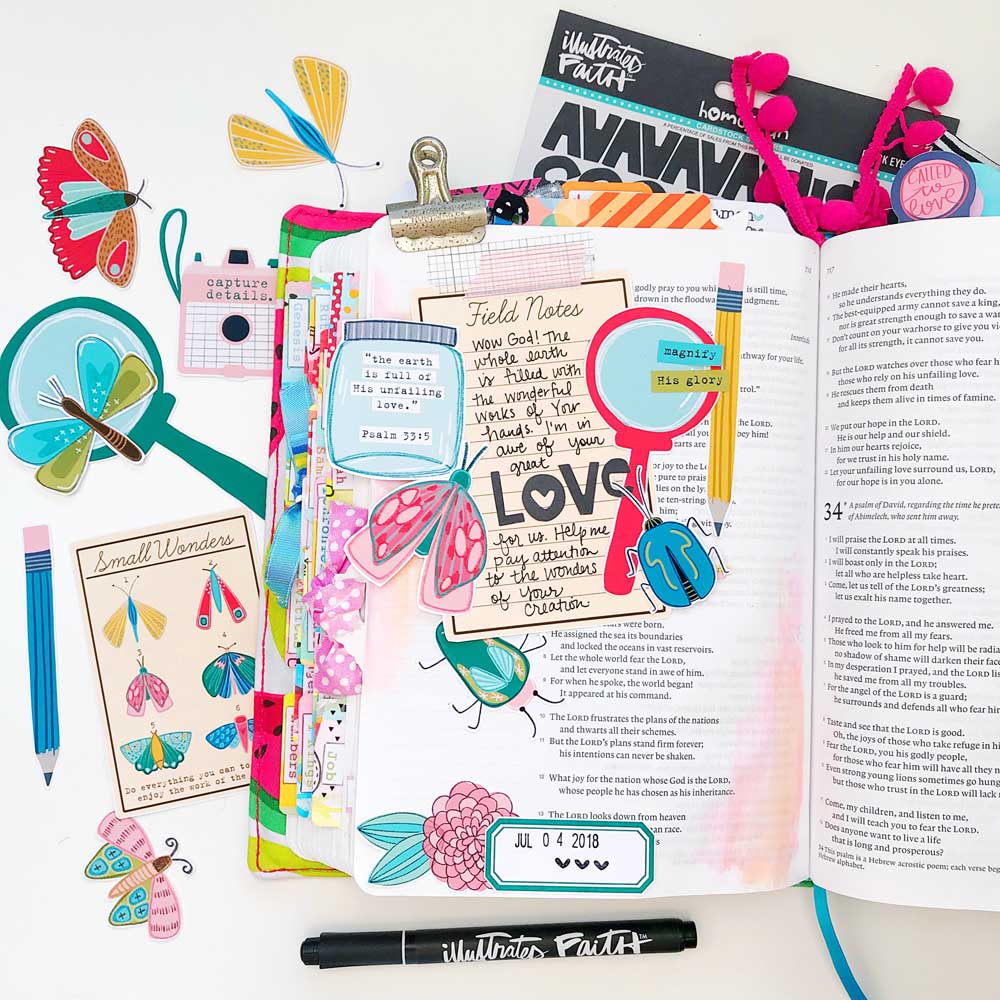 illustrated
FAITH™
CARDSTOCK
AVAVAVAV
CALLED
to
LOVE
capture
details.
Genesis
Field Notes
WOW God! The
whole earth
is filled with
the wonderful
works of Your
hands. I'm in
awe of your
great
LOVE
for us. Help me
pay attention
to the wonders
of Your
creation
"the earth
is full of
His unfailing
love."
Psalm 33:5
magnify
His glory
Small Wonders
1
2
3
4
5
6
Do everything you can to
enjoy the work of the
Job
JUL 04 2018
illustrated FAITH™
716
godly pray to you while
is still time,
drown in the floodwa
judgment.
Interlude
athway for your life.
trol."
the LORD.
obey him!
hearts are
or joy to the L
e pure to prais
lies on the lyr
ten-string
were born.
He assigned the sea its boundaries
and locked the oceans in vast reservoirs.
8 Let the whole world fear the LORD,
and let everyone stand in awe of him.
9 For when he spoke, the world began!
It appeared at his command.
10 The LORD frustrates the plans of the nations
and thwarts all their schemes.
11 But the LORD's plans stand firm forever;
his intentions can never be shaken.
12 What joy for the nation whose God is the LORD,
whose people he has chosen as his inheritance.
13 The LORD looks down from heaven
an race.
717
He made their hearts,
so he understands everything they do.
The best-equipped army cannot save a king,
nor is great strength enough to save a
Don't count on your warhorse to give you
for all its strength, it cannot save you.
But the LORD watches over those who fear
those who rely on his unfailing love.
He rescues them from death
and keeps them alive in times of famine.
We put our hope in the LORD.
He is our help and our shield.
In him our hearts rejoice,
for we trust in his holy name.
Let your unfailing love surround us, LORD,
for our hope is in you alone.
34 A psalm of David, regarding the time he
of Abimelech, who sent him away.
I will praise the LORD at all times.
I will constantly speak his praises.
I will boast only in the LORD;
let all who are helpless take heart.
Come, let us tell of the LORD's greatness;
let us exalt his name together.
I prayed to the LORD, and he answered me.
He freed me from all my fears.
Those who look to him for help will be
no shadow of shame will darken their
In my desperation I prayed, and the LORD
he saved me from all my troubles.
For the angel of the LORD is a guard;
he surrounds and defends all who fear
Taste and see that the LORD is good.
Oh, the joys of those who take refuge in
Fear the LORD, you his godly people,
for those who fear him will have all they
Even strong young lions sometimes go
but those who trust in the LORD will lack
Come, my children, and listen to me,
and I will teach you to fear the LORD.
Does anyone want to live a life
that is long and prosperous?
34 This psalm is a Hebrew acrostic poem; each verse
Hebrew alphabet.